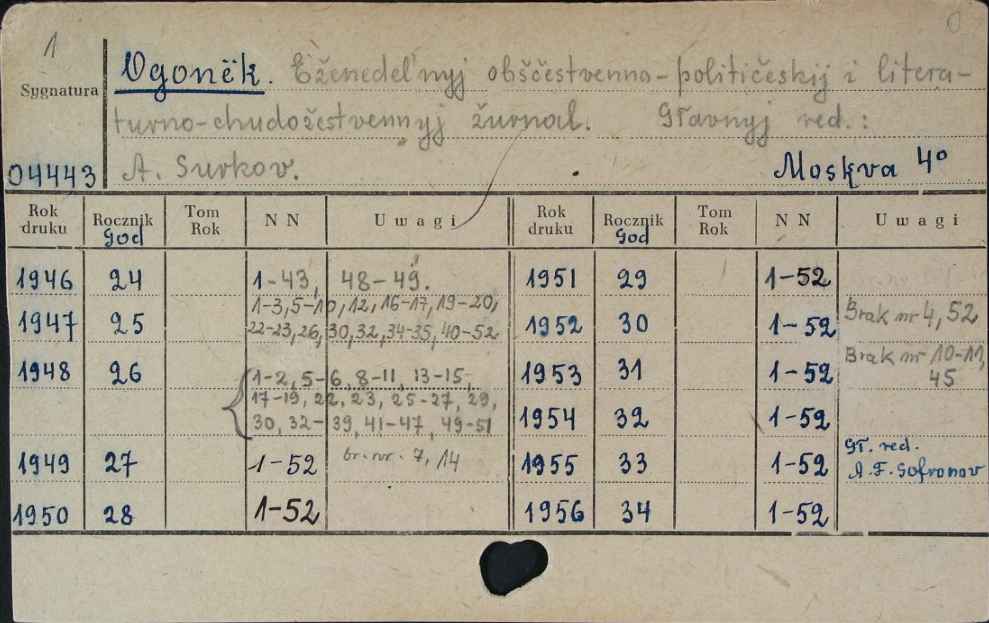 1
Ogonëk. Eženedel'nyj obščestvenno-političeskij i litera-
Sygnatura
turno-chudožestvennyj žurnal. Gławnyj red.:
04443 A. Surkov. Moskva 4°
Rok druku Rocznik God Tom Rok NN Uwagi Rok druku Rocznik God Tom Rok NN Uwagi
1946 24 1-43, 48-49. 1951 29 1-52
1947 25 1-3,5-10,12,16-17,19-20,
22-23,26,30,32,34-35,40-52 1952 30 1-52 Brak nr 4, 52
1948 26 1-2, 5-6, 8-11, 13-15, 1953 31 1-52 Brak nr 10-11,
45
17-19, 22, 23, 25-27, 29,
30, 32-39, 41-47, 49-51 1954 32 1-52
1949 27 1-52 br. nr. 7, 14 1955 33 1-52 Gł. red.
A. F. Sofronov
1950 28 1-52 1956 34 1-52